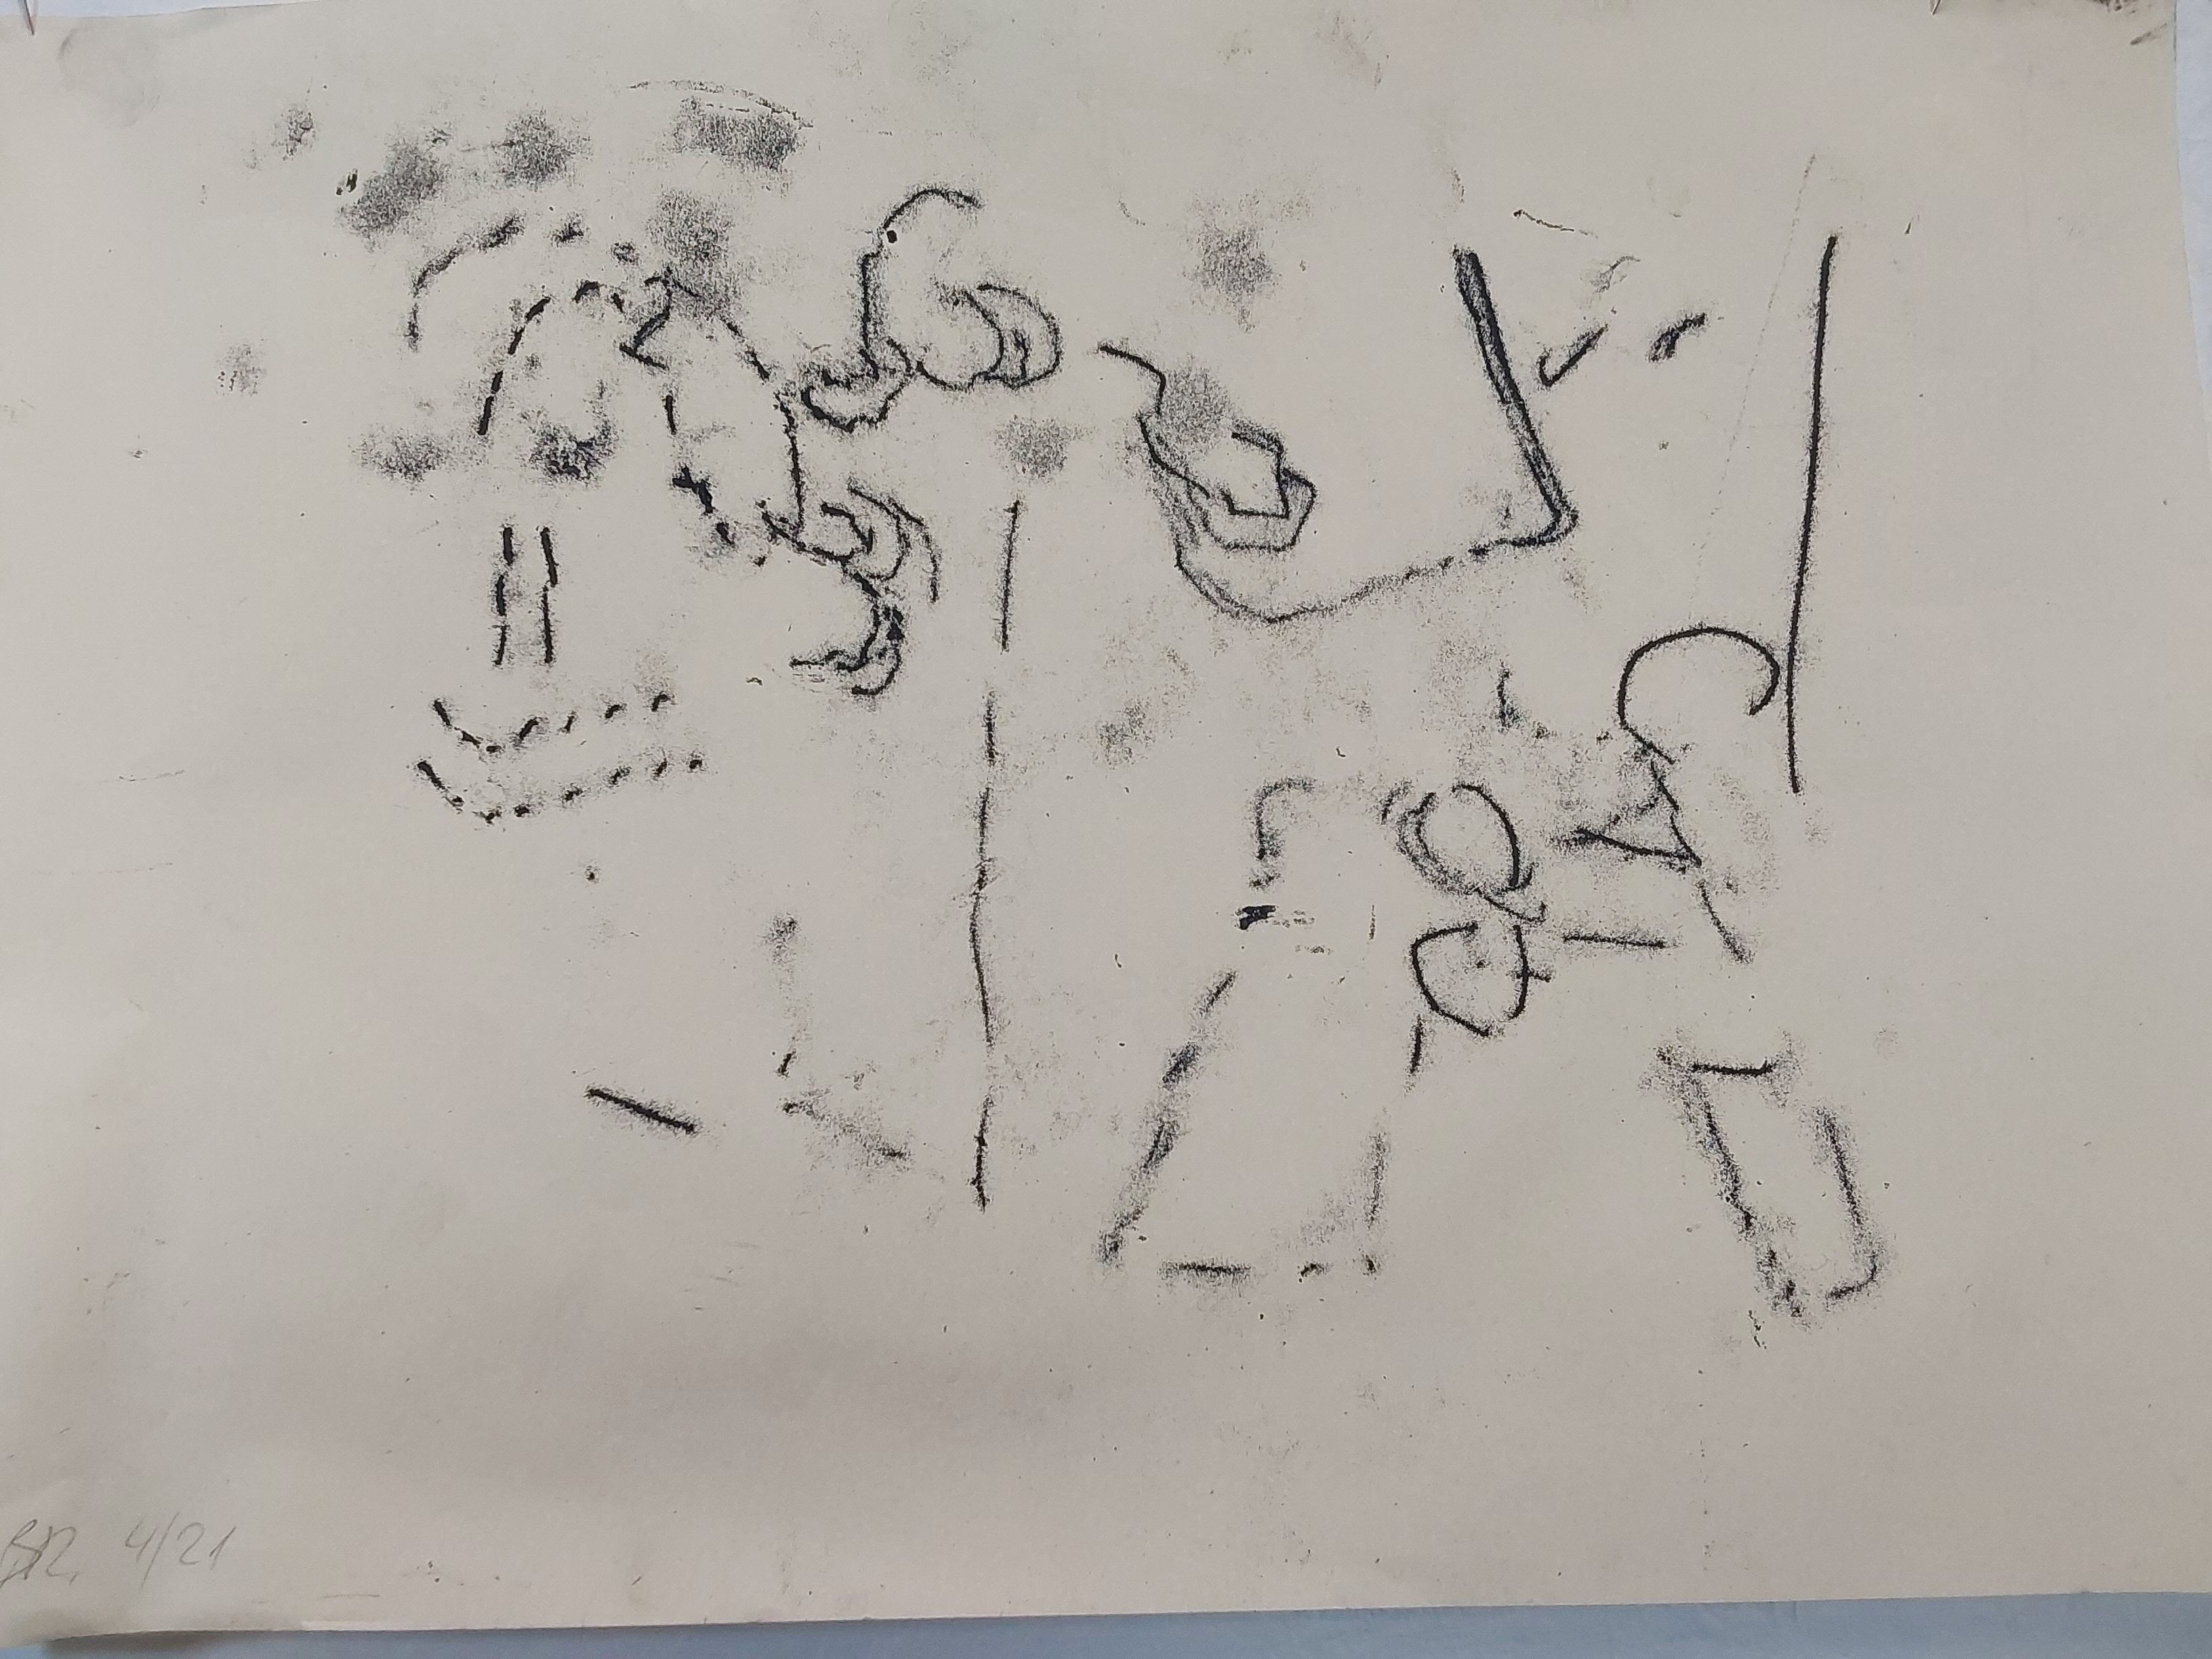 BR 4/21